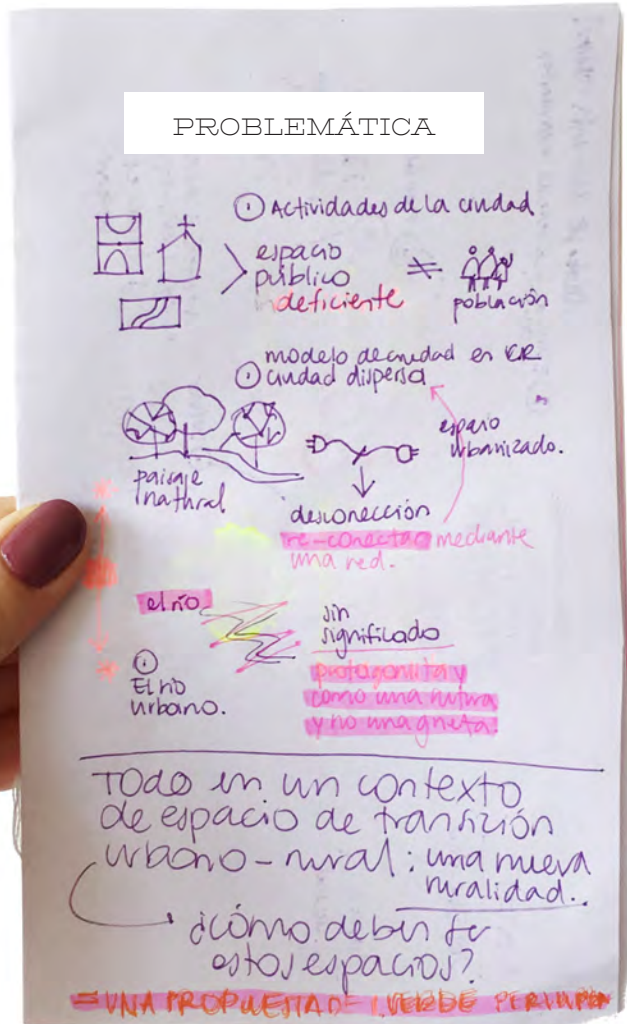 PROBLEMÁTICA
① Actividades de la ciudad
espacio
público
deficiente
≠
población
modelo de ciudad en CR
① ciudad dispersa
espacio
urbanizado.
paisaje
natural
desconección
re-conectar mediante
una red.
el río
sin
significado
①
El río
urbano.
protagonista y
como una
y no una grieta.
TODO en un contexto
de espacio de transición
urbano-rural: una nueva
ruralidad..
¿cómo deben ser
estos espacios?
= UNA PROPUESTA DE I. VERDE